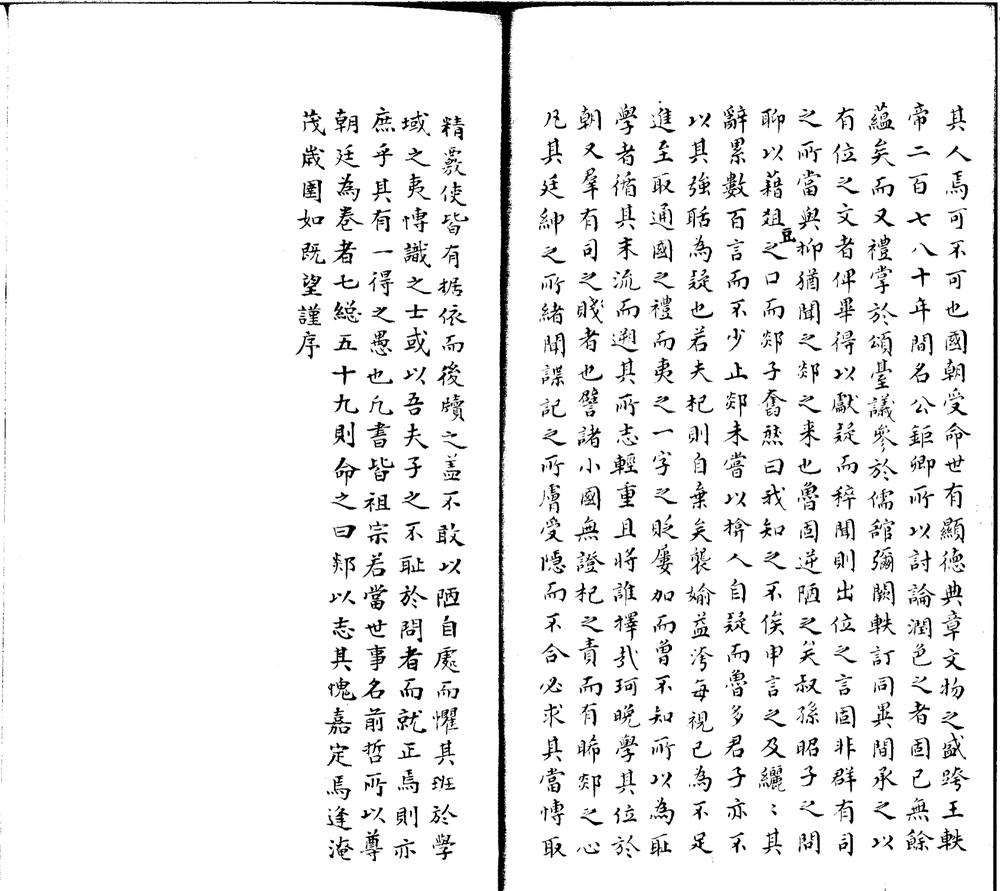 其人焉可不可也國朝受命世有顯德典章文物之盛跨王軼
帝二百七八十年間名公鉅卿所以討論潤色之者固已無餘
蘊矣而又禮掌於頌臺議參於儒館彌闕軼訂同異間承之以
有位之文者俾畢得以獻疑而稡聞則出位之言固非群有司
之所當與抑猶聞之郯之来也魯固逆陋之矣叔孫昭子之問
聊以藉俎豆之口而郯子奮然曰我知之不俟申言之及纚〻其
辭累數百言而不少止郯未嘗以揜人自疑而魯多君子亦不
以其強聒為疑也若夫杞則自棄矣襲媮益滂每視已為不足
進至取通國之禮而夷之一字之貶屢加而曾不知所以為耻
學者循其末流而遡其所志輕重且將誰擇㢤珂晚學其位於
朝又羣有司之賤者也譬諸小國無證杞之責而有睎郯之心
凡其廷紳之所緒聞諜記之所膚受隱而不合必求其當慱取
精覈使皆有据依而後牘之盖不敢以陋自處而懼其班於學
域之夷慱識之士或以吾夫子之不耻於問者而就正焉則亦
庶乎其有一得之愚也凢書皆祖宗若當世事名前哲所以尊
朝廷為卷者七總五十九則命之曰郯以志其愧嘉定焉逢淹
茂歲圉如既望謹序